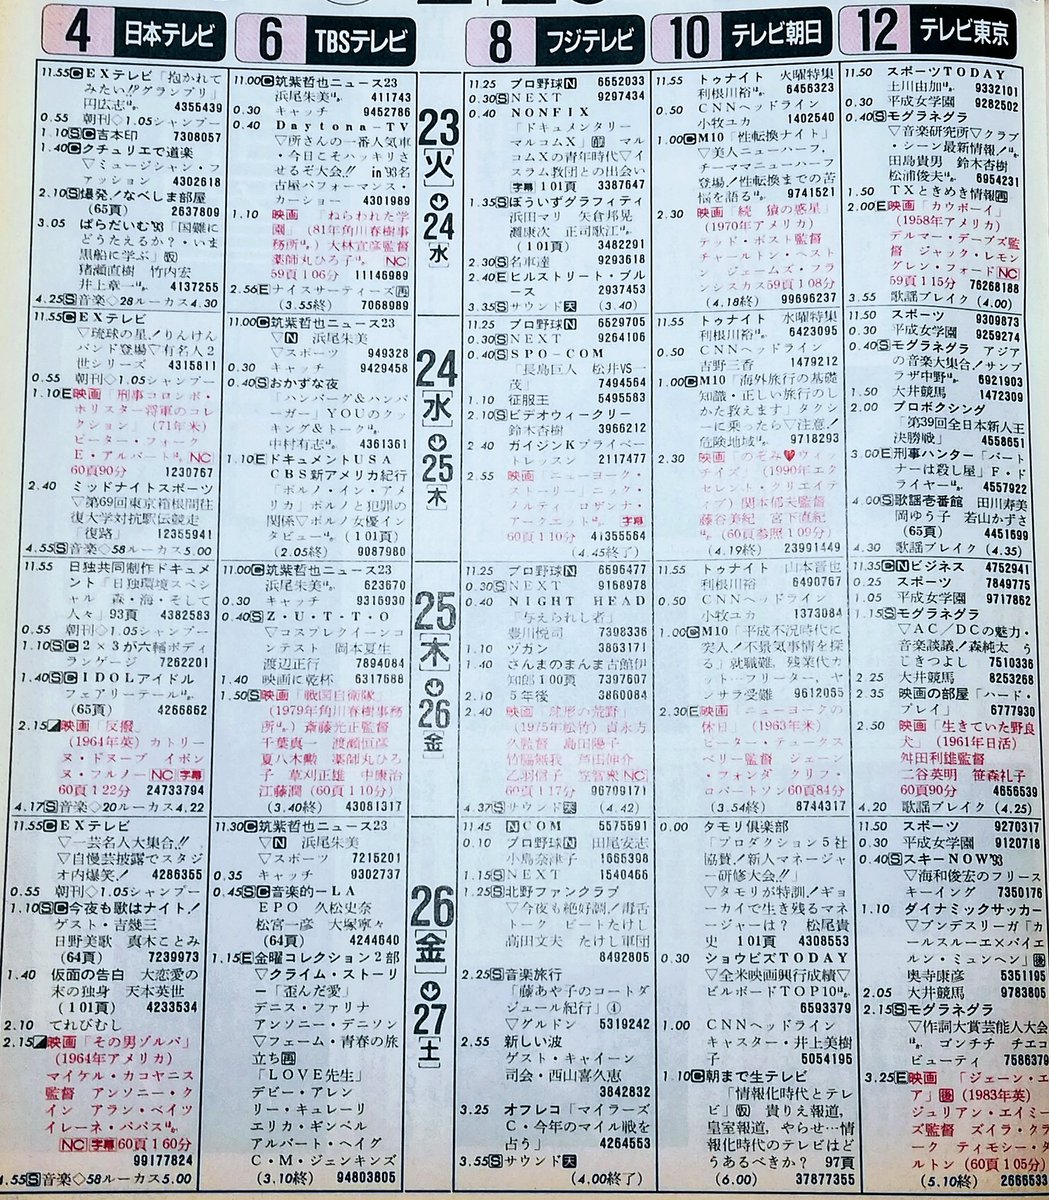 4 日本テレビ
6 TBSテレビ
8 フジテレビ
10 テレビ朝日
12 テレビ東京
11.55 C EXテレビ「抱かれて
みたい!?グランプリ」
円広志ほか 4355439
0.55 朝刊◇1.05シャンプー
1.10 S C 吉本印 7308057
1.40 C クチュリエで道楽
▽ミュージシャン・フ
ァッション 4302618
2.10 S 爆発!なべしま部屋
(65頁) 2637809
3.05 ぱらだいむ'93「国難に
どうたえるか?・いま
黒船に学ぶ」
猪瀬直樹 竹内宏
井上章一ほか 4137255
4.25 S 音楽◇28ルーカス4.30
11.00 C 筑紫哲也ニュース23
浜尾朱美ほか 411743
0.30 キャッチ 9452786
0.40 Daytona-TV
▽所さんの一番人気車
・今日こそハッキリさ
せるぞ大会!! in'93名
古屋パフォーマンス・
カーショー 4301989
1.10 映画 「ねらわれた学
園」('81年角川春樹事
務所ほか)大林宣彦監督
薬師丸ひろ子ほか NC
59頁106分 11146989
2.56 E ナイスサーティーズ 再
(3.55終) 7068989
23
[火]
24
[水]
11.25 プロ野球 N 6652033
0.30 S NEXT 9297434
0.40 NONFIX
「ドキュメンタリー
マルコムX」 マル
コムXの青年時代▽イ
スラム教団との出会い
字幕 101頁 3387647
1.35 S ぼういずグラフィティ
浜田マリ 矢倉邦晃
灘康次 正司歌江ほか
(101頁) 3482291
2.30 S 名車達 9293618
2.40 E ヒルストリート・ブル
ース 2937453
3.35 S サウンド 天 (3.40)
11.55 トゥナイト 火曜特集
利根川裕ほか 6456323
0.50 CNNヘッドライン
小牧ユカ 1402540
1.00 C M10「性転換ナイト」
▽美人ニューハーフ、
チーママニューハーフ
登場!性転換までの苦
悩を語るほか 9741521
2.30 映画「続 猿の惑星」
(1970年アメリカ)
テッド・ポスト監督
チャールトン・ヘスト
ン ジェームズ・フラ
ンシスカス59頁108分
(4.18終) 99696237
11.50 スポーツTODAY
上川由加ほか 9332101
0.30 平成女学園 9282502
0.40 S モグラネグラ
▽音楽研究所▽クラブ
・シーン最新情報!ほか
田島貴男 鈴木杏樹
松浦俊夫ほか 6954231
1.50 TXときめき情報 再
2.00 E 映画「カウボーイ」
(1958年アメリカ)
デルマー・デーブズ監
督 ジャック・レモン
グレン・フォード NC
59頁115分 76268188
3.55 歌謡ブレイク (4.00)
11.55 C EXテレビ
▽琉球の星!りんけん
バンド登場▽有名人2
世シリーズ 4315811
0.55 朝刊◇1.05シャンプー
1.10 E 映画「刑事コロンボ・
ホリスター将軍のコレ
クション」('71年米)
ピーター・フォーク
E・アルバートほか NC
60頁90分 1230767
2.40 ミッドナイトスポーツ
▽第69回東京箱根間往
復大学対抗駅伝競走
「復路」 12355941
4.55 S 音楽◇58ルーカス5.00
11.00 C 筑紫哲也ニュース23
▽N 浜尾朱美
▽スポーツ 949328
0.30 キャッチ 9429458
0.40 S おかずな夜
「ハンバーグ&ハンバ
ーガー」YOUのクッ
キング&トークほか
中村有志ほか 4361361
1.10 E ドキュメントUSA
CBS新アメリカ紀行
「ポルノ・イン・アメ
リカ」ポルノと犯罪の
関係▽ポルノ女優イン
タビューほか (101頁)
(2.05終) 9087980
24
[水]
25
[木]
11.25 プロ野球 N 6529705
0.30 S NEXT 9264106
0.40 S SPO-COM
「長島巨人 松井VS一
茂」 7494564
1.10 征服王 5495583
2.10 S ビデオウィークリー
鈴木杏樹 3966212
2.40 ガイジンKプライベー
トレッスン 2117477
2.55 映画「ニューヨーク・
ストーリー」ニック・
ノルティ ロザンナ・
アークエットほか 字幕
60頁110分 41355564
(4.45終了)
11.55 トゥナイト 水曜特集
利根川裕ほか 6423095
0.50 CNNヘッドライン
吉野三香 1479212
1.00 C M10「海外旅行の基礎
知識・正しい旅行のし
かた教えます」タクシ
ーに乗ったら▽注意!
危険地域ほか 9718293
2.30 映画「のぞみ♥ウィッ
チィズ」(1990年エク
セレント・クリエイテ
ィブ) 関本郁夫監督
藤谷美紀 宮下直紀
ほか(60頁参照109分)
(4.19終) 23991449
11.50 スポーツ 9309873
0.30 平成女学園 9259274
0.40 S モグラネグラ アジア
の音楽大集合!サンプ
ラザ中野ほか 5921903
1.50 大井競馬 1472309
2.00 プロボクシング
「第39回全日本新人王
決勝戦」 4558651
3.00 E 刑事ハンター「パート
ナーは殺し屋」F・ド
ライヤーほか 4557922
4.00 S 歌謡壱番館 田川寿美
岡ゆう子 若山かずさ
(65頁) 4451699
4.30 歌謡ブレイク (4.35)
11.55 日独共同制作ドキュメ
ント「日独環境スペシ
ャル 森・海・そして
人々」93頁 4382583
0.55 朝刊◇1.05シャンプー
1.10 S C 2×3が六輔ボディ
ランゲージ 7262201
1.40 S C IDOLアイドル
フェアリーテールほか
(65頁) 4266862
2.15 映画「反撥」
(1964年英)カトリー
ヌ・ドヌーブ イボン
ヌ・フルノー NC 字幕
60頁122分 24733794
4.17 S 音楽◇20ルーカス4.22
11.00 C 筑紫哲也ニュース23
浜尾朱美ほか 623670
0.30 キャッチ 9316930
0.40 S Z・U・T・T・O
▽コスプレクイーンコ
ンテスト 岡本夏生
渡辺正行 7894084
1.40 映画に乾杯 6317688
1.50 S 映画「戦国自衛隊」
(1979年角川春樹事務
所ほか)斎藤光正監督
千葉真一 渡瀬恒彦
夏八木勲 薬師丸ひろ
子 草刈正雄 中康治
江藤潤(60頁110分)
(3.40終) 43081317
25
[木]
26
[金]
11.25 プロ野球 N 6696477
0.30 S NEXT 9168978
0.40 NIGHT HEAD
「与えられし者」
豊川悦司 7398336
1.10 ヅガン 3863171
1.40 さんまのまんま古舘伊
知郎100頁 7397607
2.10 5年後 3860084
2.40 映画「球形の荒野」
(1975年松竹)貞永方
久監督 島田陽子
竹脇無我 芦田伸介
乙羽信子 笠智衆 NC
60頁117分 96709171
4.37 S サウンド 天 (4.42)
11.55 トゥナイト 山本晋也
利根川裕 6490767
0.50 CNNヘッドライン
小牧ユカ 1373084
1.00 C M10「平成不況時代に
突入!不景気事情を探
る」就職難、残業代カ
ット…フリーター、ヤ
ンサラ受難 9612055
2.30 E 映画「ニューヨークの
休日」(1963年米)
ピーター・テュークス
ベリー監督 ジェーン
・フォンダ クリフ・
ロバートソン60頁84分
(3.54終) 8744317
11.35 C N ビジネス 4752941
0.25 スポーツ 7849775
1.05 平成女学園 9717862
1.15 S モグラネグラ
▽AC/DCの魅力・
音楽談議!森純太 う
じきつよし 7510336
2.25 大井競馬 8253268
2.35 映画の部屋「ハード・
プレイ」 6777930
2.50 映画「生きていた野良
犬」(1961年日活)
舛田利雄監督
二谷英明 笹森礼子
60頁90分 4656539
4.20 歌謡ブレイク(4.25)
11.55 C EXテレビ
▽一芸名人大集合!!
▽自慢芸披露でスタジ
オ内爆笑! 4286355
0.55 朝刊◇1.05シャンプー
1.10 S C 今夜も歌はナイト!
ゲスト・吉幾三
日野美歌 真木ことみ
(64頁) 7239973
1.40 仮面の告白 大恋愛の
末の独身 天本英世
(101頁) 4233534
2.10 てれびむし
2.15 映画「その男ゾルバ」
(1964年アメリカ)
マイケル・カコヤニス
監督 アンソニー・ク
イン アラン・ベイツ
イレーネ・パパスほか
NC 字幕 60頁160分
99177824
4.55 S 音楽◇58ルーカス5.00
11.30 C 筑紫哲也ニュース23
▽N 浜尾朱美
▽スポーツ 7215201
0.35 キャッチ 9302737
0.45 S C 音楽的-LA
EPO 久松史奈
松宮一彦 大塚寧々
(64頁) 4244640
1.15 E 金曜コレクション2部
▽クライム・ストーリ
ー「歪んだ愛」
デニス・ファリナ
アンソニー・デニソン
▽フェーム・青春の旅
立ち 再
「LOVE先生」
デビー・アレン
リー・キュレーリ
エリカ・ギンペル
アルバート・ヘイグ
C・M・ジェンキンズ
(3.10終) 94803805
26
[金]
27
[土]
11.45 N COM 5575591
0.10 プロ野球 N 田尾安志
小島奈津子 1665398
1.15 S NEXT 1540466
1.25 S 北野ファンクラブ
▽今夜も絶好調!毒舌
トーク ビートたけし
高田文夫 たけし軍団
8492805
2.25 S 音楽旅行
「藤あや子のコートダ
ジュール紀行」④
▽グルドン 5319242
2.55 新しい波
ゲスト・キャイーン
司会・西山喜久恵
3842832
3.25 オフレコ「マイラーズ
C・今年のマイル戦を
占う」 4264553
3.55 S サウンド 天
(4.00終了)
0.00 タモリ倶楽部
「プロダクション5社
協賛!新人マネージャ
ー研修大会!!」
▽タモリが特訓!ギョ
ーカイで生き残るマネ
ージャーは? 松尾貴
史 101頁 4308553
0.30 ショウビズTODAY
▽全米映画興行成績▽
ビルボードTOP10ほか
6593379
1.00 CNNヘッドライン
キャスター・井上美樹
子 5054195
1.10 C 朝まで生テレビ
「情報化時代とテレ
ビ」 貴りえ報道,
皇室報道,やらせ…情
報化時代のテレビはど
うあるべきか? 97頁
(6.00) 37877355
11.50 スポーツ 9270317
0.30 平成女学園 9120718
0.40 S スキーNOW'93
▽海和俊宏のフリース
キーイング 7350176
1.10 ダイナミックサッカー
▽ブンデスリーガ「カ
ールスルーエ×バイエ
ルン・ミュンヘン」
奥寺康彦 5351195
2.05 大井競馬 9783805
2.15 S モグラネグラ
▽作詞大賞芸能人大会
ほか ゴンチチ チエコ・
ビューティ 7586379
3.25 E 映画 「ジェーン・エ
ア」 (1983年英)
ジュリアン・エイミー
ズ監督 ズイラ・クラ
ーク ティモシー・ダ
ルトン (60頁105分)
(5.10終) 2666533